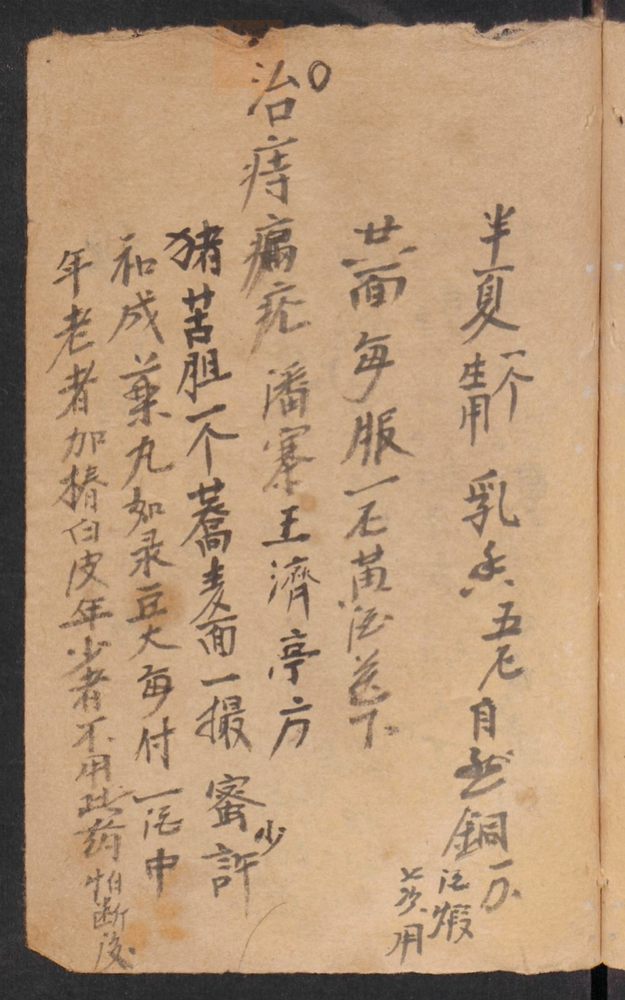 半夏一个生用 乳香五厘 自然銅一分 醋煅七次用
共面每服一厘黄酒送下
○治痔漏疮 潘寨王濟亭方
猪苦胆一个 蕎麦面一撮 蜜少許
和成藥丸如录豆大每付一酒中
年老者加椿白皮年少者不用此药怕断後